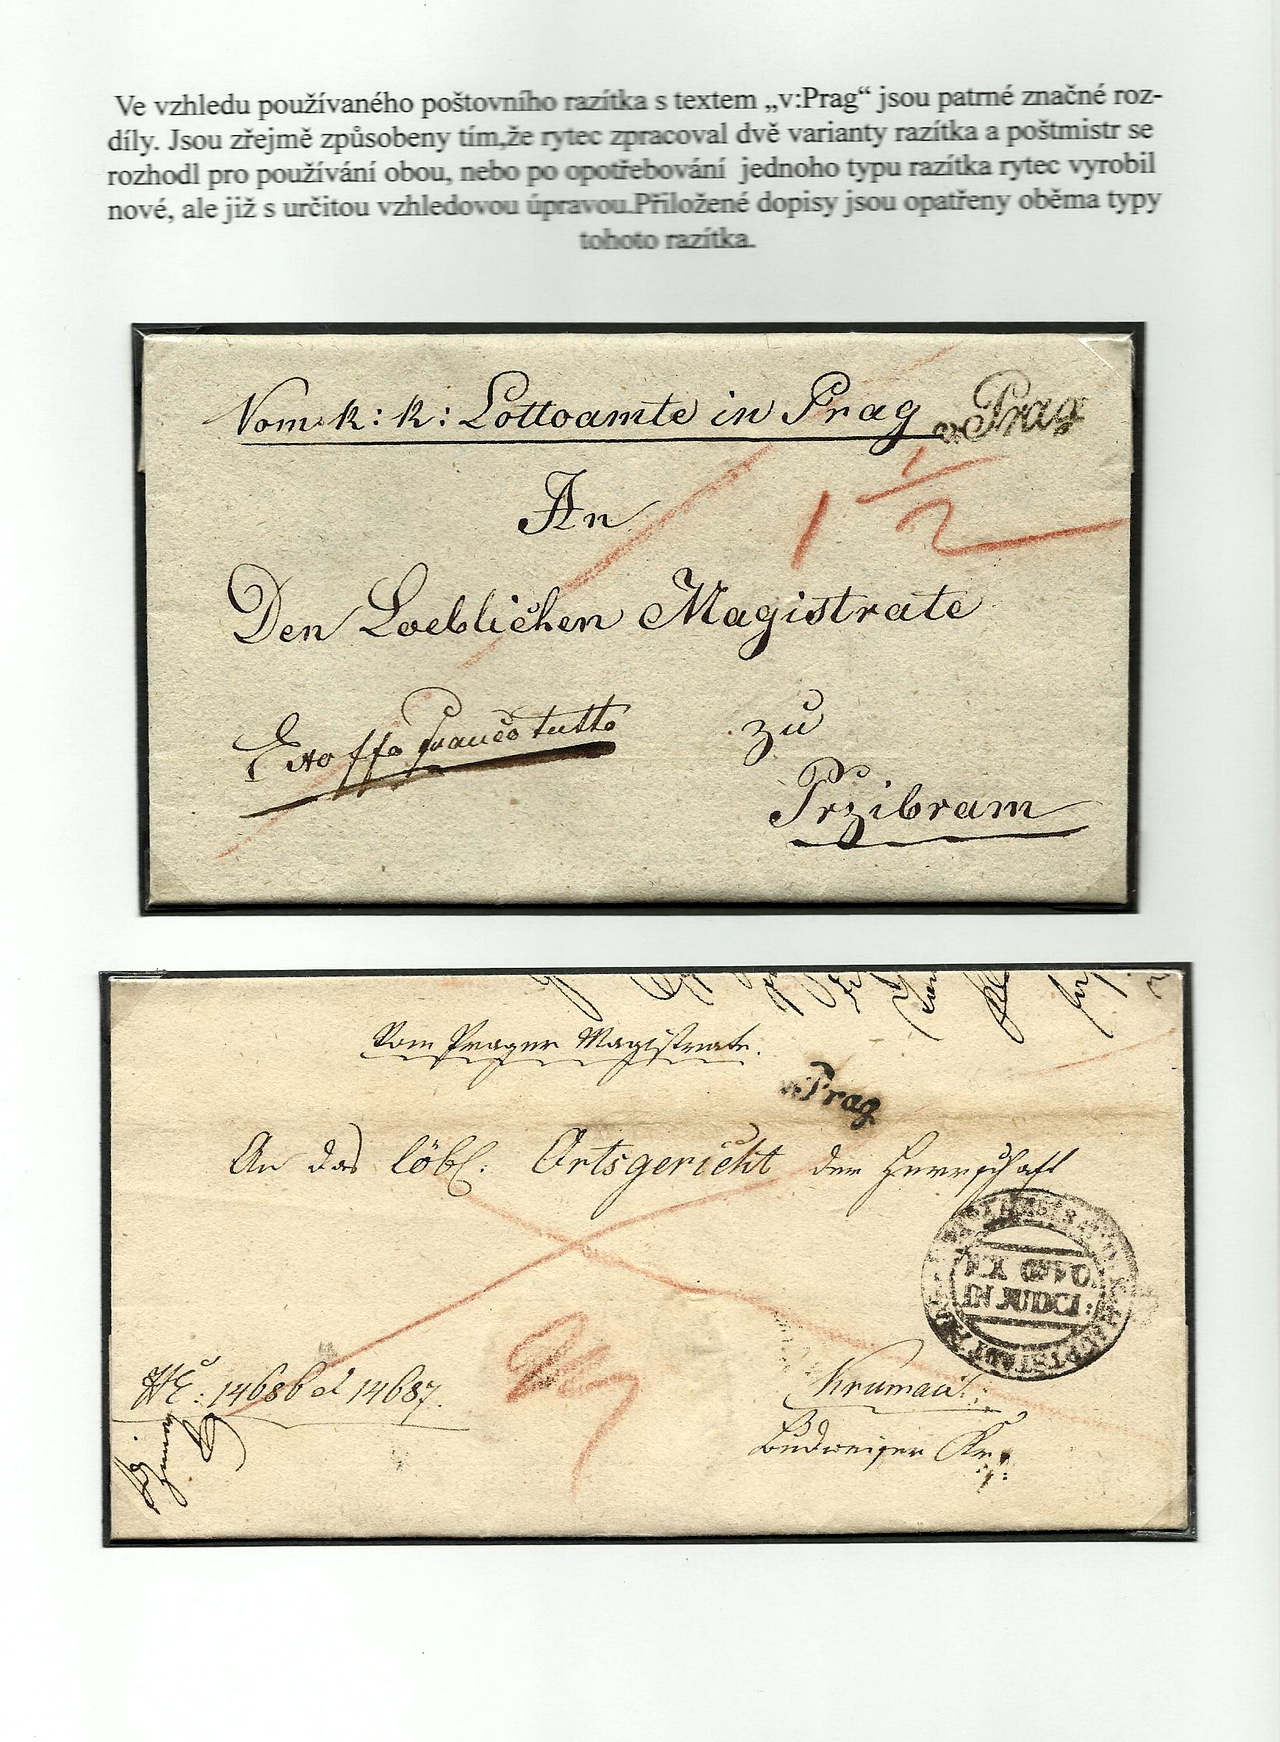 Ve vzhledu používaného poštovního razítka s textem „v:Prag“ jsou patrné značné roz-
díly. Jsou zřejmě způsobeny tím,že rytec zpracoval dvě varianty razítka a poštmistr se
rozhodl pro používání obou, nebo po opotřebování jednoho typu razítka rytec vyrobil
nové, ale již s určitou vzhledovou úpravou.Přiložené dopisy jsou opatřeny oběma typy
tohoto razítka.
Vom k: k: Lottoamte in Prag v:Prag
An
1 1/2
Den Loeblichen Magistrate
Exoffo franco tutto
zu
Przibram
Vom Prager Magistrate.
v:Prag
An das löbl: Ortsgericht der Herrschaft
IN JUDCI:
HAUPTSTADT
14686 et 14687.
Krumau
Budweiser Kr: